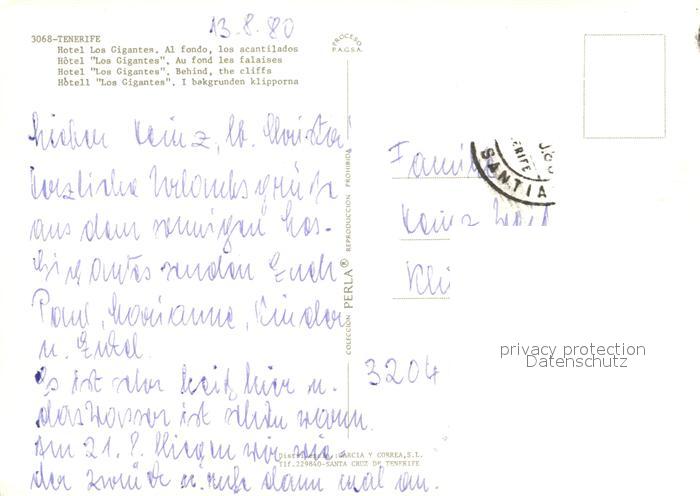 13.8.80
3068-TENERIFE
Hotel Los Gigantes. Al fondo, los acantilados
Hôtel "Los Gigantes". Au fond les falaises
Hotel "Los Gigantes". Behind, the cliffs
Hôtell "Los Gigantes". I bakgrunden klipporna
PROCESO
P.A.G.S.A.
Lieber Heinz, lb. Christa!
herzliche Urlaubsgrüße
aus dem sonnigen Los-
Gigantes senden Euch
Paul, Marianne, Kinder
u. Enkel.
Es ist sehr heiß hier u.
das Wasser ist schön warm.
Am 21.8. fliegen wir wie-
der zurück u. rufe dann mal an.
COLECCION PERLA® REPRODUCCION PROHIBIDA
Familie
Heinz
3204
SANTIA
privacy protection
Datenschutz
GARCIA Y CORREA, S.L.
Tlf.229840-SANTA CRUZ DE TENERIFE